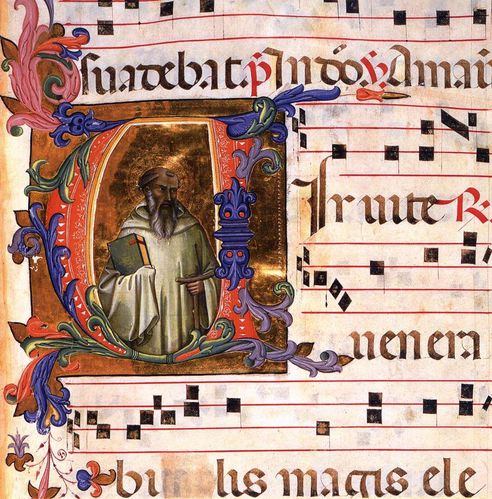 suadebat p̄ In dōo ℣ Amau
UIr uite ℟.
uenera
bi lis magis ele